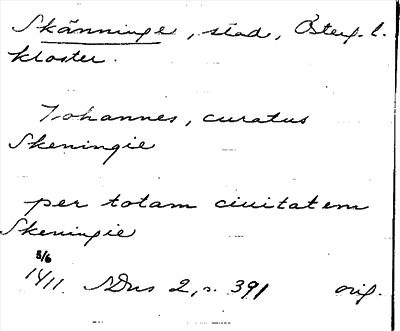 Skänninge, stad, Österg. l.
kloster.
Johannes, curatus
Skeningie
per totam ciuitatem
Skeningie
5/6
1411. SDns 2, s. 391 orig.